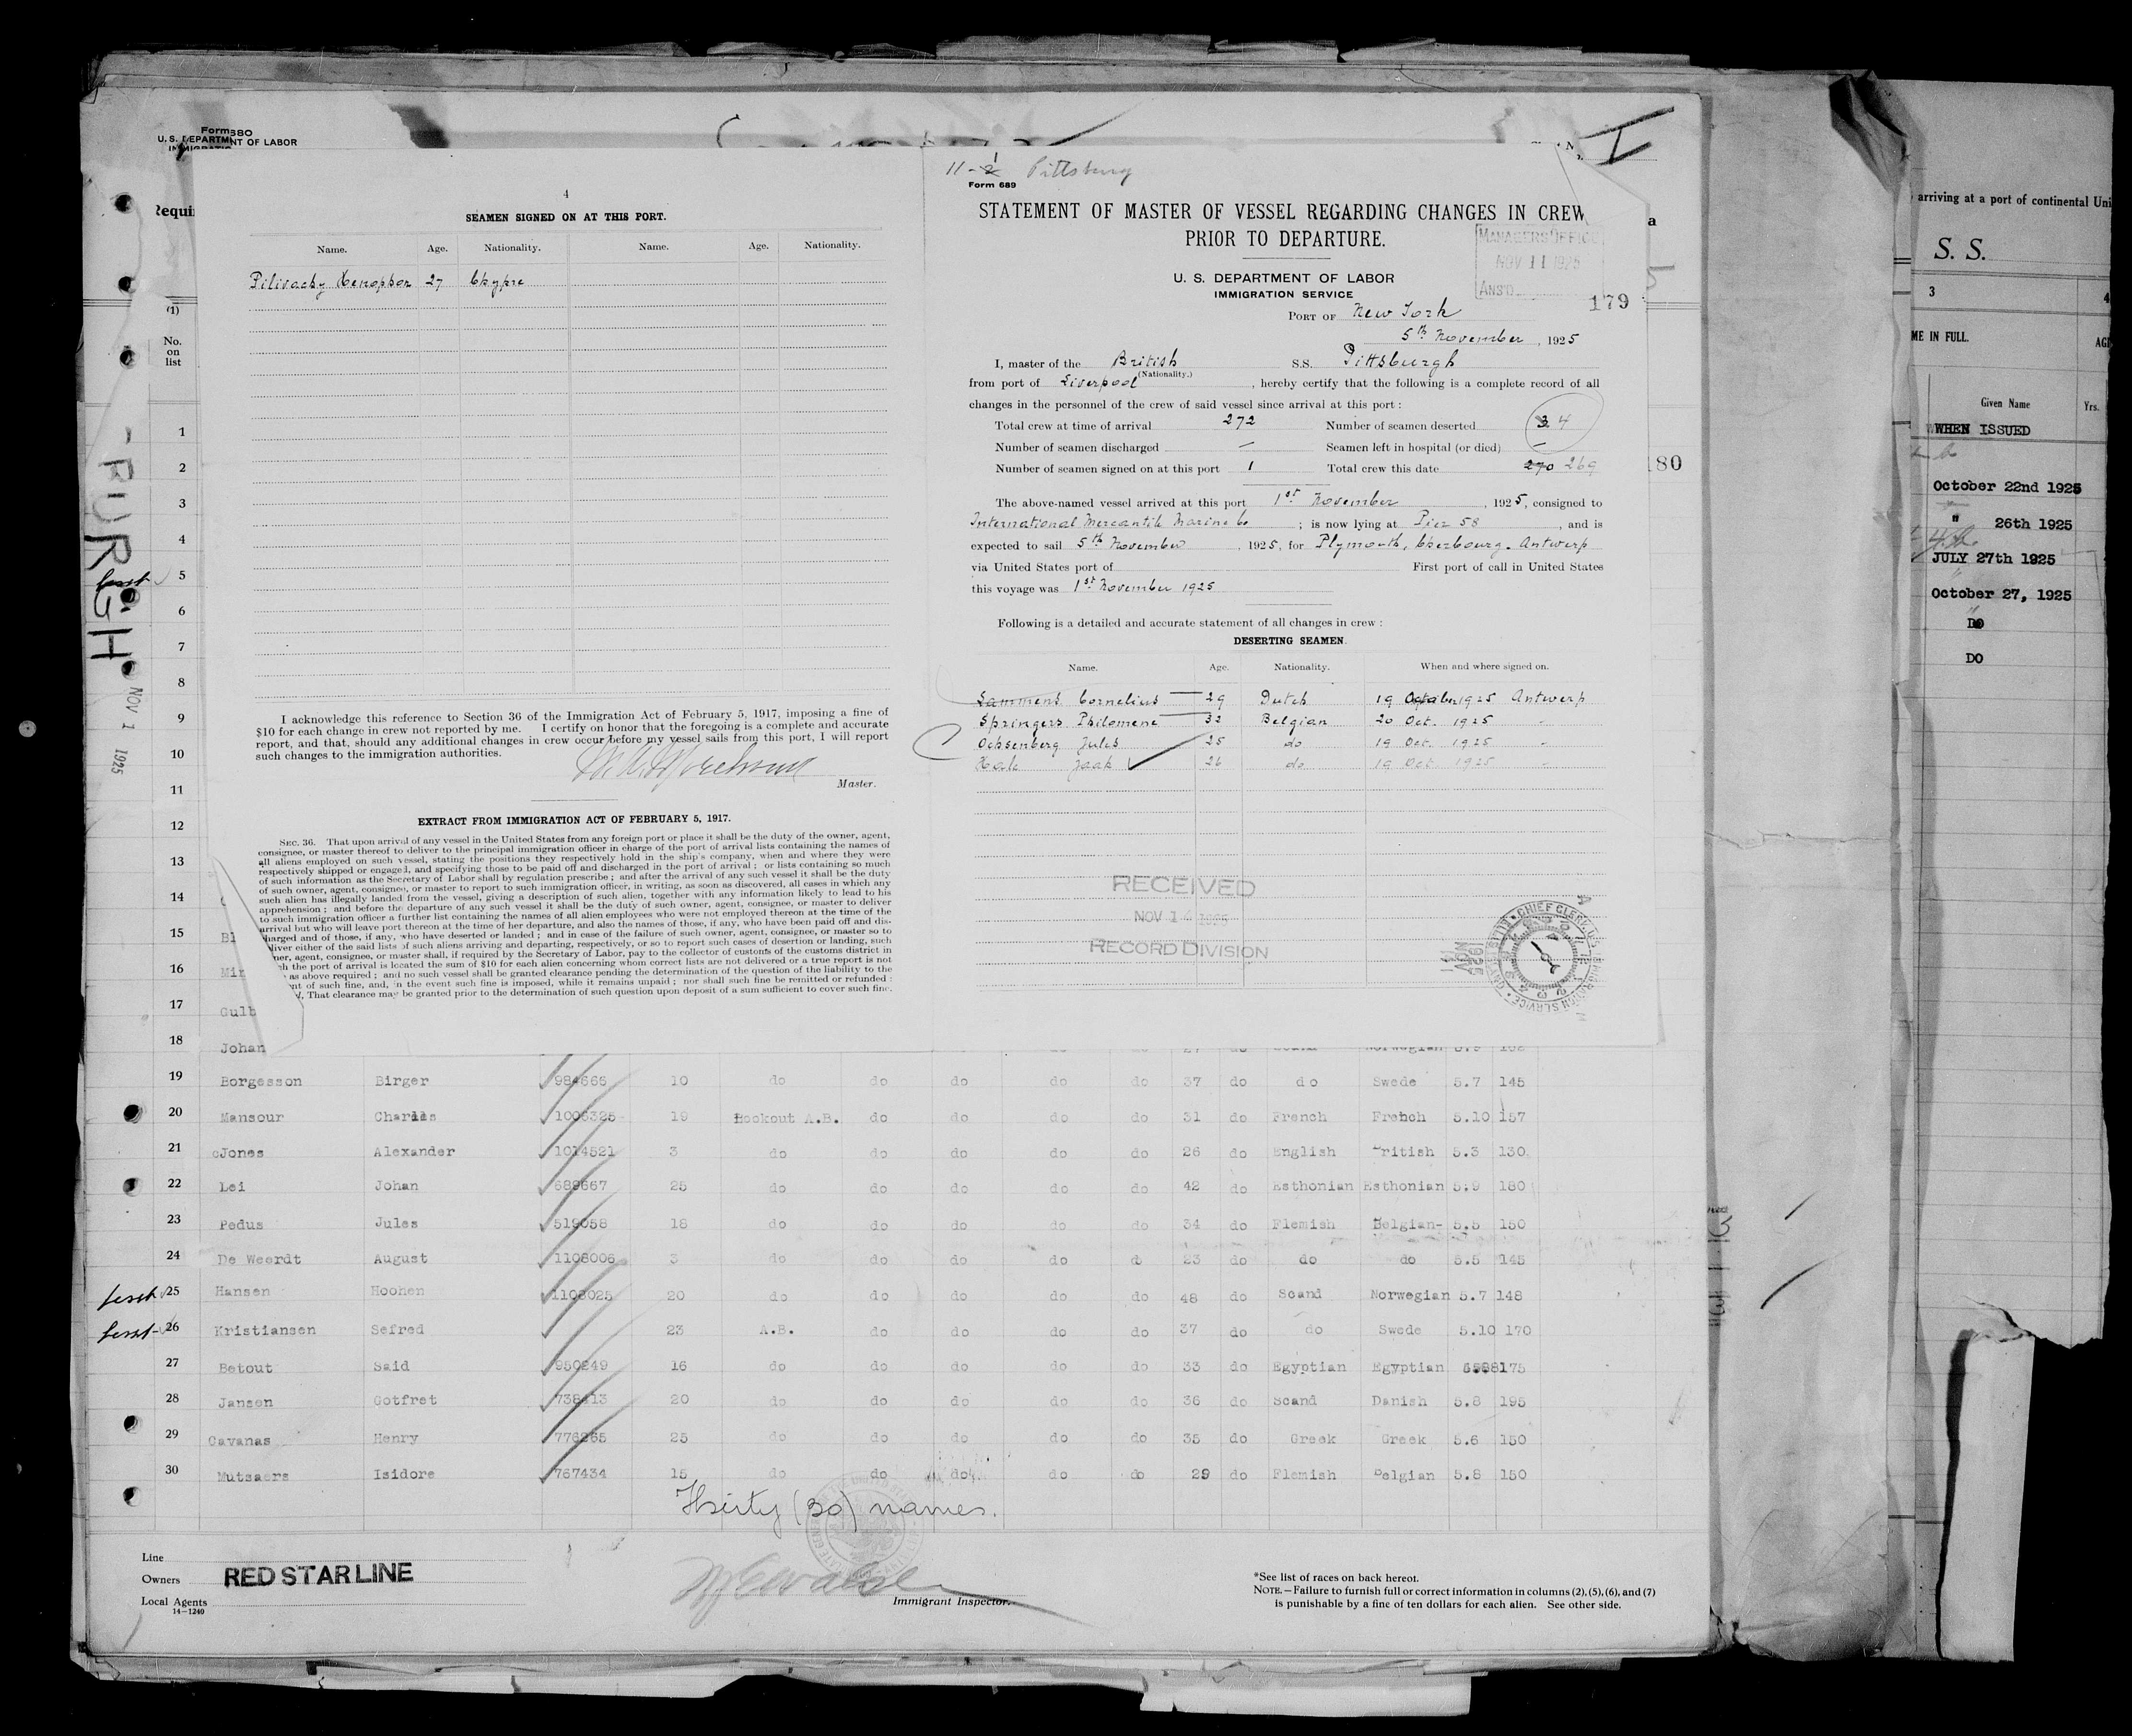 Form 680
U. S. DEPARTMENT OF LABOR
Requi
(1)
No.
on
list
1
2
3
4
5
6
7
8
9
10
11
12
13
14
15
16
17
18
PITTSBURGH
NOV 1 1925
4
SEAMEN SIGNED ON AT THIS PORT.
Name. Age. Nationality. Name. Age. Nationality.
Pilivachy Xenophon 27 Chypre
I acknowledge this reference to Section 36 of the Immigration Act of February 5, 1917, imposing a fine of
$10 for each change in crew not reported by me. I certify on honor that the foregoing is a complete and accurate
report, and that, should any additional changes in crew occur before my vessel sails from this port, I will report
such changes to the immigration authorities.
Master.
EXTRACT FROM IMMIGRATION ACT OF FEBRUARY 5, 1917.
SEC. 36. That upon arrival of any vessel in the United States from any foreign port or place it shall be the duty of the owner, agent,
consignee, or master thereof to deliver to the principal immigration officer in charge of the port of arrival lists containing the names of
all aliens employed on such vessel, stating the positions they respectively hold in the ship's company, when and where they were
respectively shipped or engaged, and specifying those to be paid off and discharged in the port of arrival; or lists containing so much
of such information as the Secretary of Labor shall by regulation prescribe; and after the arrival of any such vessel it shall be the duty
of such owner, agent, consignee, or master to report to such immigration officer, in writing, as soon as discovered, all cases in which any
such alien has illegally landed from the vessel, giving a description of such alien, together with any information likely to lead to his
apprehension; and before the departure of any such vessel it shall be the duty of such owner, agent, consignee, or master to deliver
to such immigration officer a further list containing the names of all alien employees who were not employed thereon at the time of the
arrival but who will leave port thereon at the time of her departure, and also the names of those, if any, who have been paid off and dis-
charged and of those, if any, who have deserted or landed; and in case of the failure of such owner, agent, consignee, or master so to
deliver either of the said lists of such aliens arriving and departing, respectively, or so to report such cases of desertion or landing, such
ner, agent, consignee, or master shall, if required by the Secretary of Labor, pay to the collector of customs of the customs district in
ch the port of arrival is located the sum of $10 for each alien concerning whom correct lists are not delivered or a true report is not
as above required; and no such vessel shall be granted clearance pending the determination of the question of the liability to the
nt of such fine, and, in the event such fine is imposed, while it remains unpaid; nor shall such fine be remitted or refunded:
d, That clearance may be granted prior to the determination of such question upon deposit of a sum sufficient to cover such fine.
11-2 1 Pittsburg
Form 689
STATEMENT OF MASTER OF VESSEL REGARDING CHANGES IN CREW
PRIOR TO DEPARTURE.
MANAGERS OFFICE
NOV 11 1925
ANS'D
U. S. DEPARTMENT OF LABOR
IMMIGRATION SERVICE
179
PORT OF New York
5th November, 1925
I, master of the British S.S. Pittsburgh
(Nationality.)
from port of Liverpool, hereby certify that the following is a complete record of all
changes in the personnel of the crew of said vessel since arrival at this port:
Total crew at time of arrival 272 Number of seamen deserted 3 4
Number of seamen discharged — Seamen left in hospital (or died) —
Number of seamen signed on at this port 1 Total crew this date 270 269
180
The above-named vessel arrived at this port 1st November, 1925, consigned to
International Mercantile Marine Co; is now lying at Pier 58, and is
expected to sail 5th November, 1925, for Plymouth, Cherbourg. Antwerp
via United States port of First port of call in United States
this voyage was 1st November 1925
Following is a detailed and accurate statement of all changes in crew:
DESERTING SEAMEN.
Name. Age. Nationality. When and where signed on.
Sammens Cornelius 29 Dutch 19 October 1925 Antwerp
Springers Philomene 32 Belgian 20 Oct. 1925 "
Ochsenberg Jules 25 do 19 Oct. 1925 "
Jaak 26 do 19 Oct. 1925 "
RECEIVED
NOV 14 1925
RECORD DIVISION
CHIEF CLERK
Bl
Mir
Gulb
Johan
19 Borgesson Birger 984666 10 do do do do do 37 do do Swede 5.7 145
20 Mansour Charles 1006325 19 Lookout A.B. do do do do 31 do French French 5.10 157
21 Jones Alexander 1014521 3 do do do do do 26 do English British 5.3 130
22 Lei Johan 689667 25 do do do do do 42 do Esthonian Esthonian 5.9 180
23 Pedus Jules 519058 18 do do do do do 34 do Flemish Belgian- 5.5 150
24 De Weerdt August 1108006 3 do do do do do 23 do do do 5.5 145
25 Hansen Hoohen 1108025 20 do do do do do 48 do Scand Norwegian 5.7 148
26 Kristiansen Sefred 23 A.B. do do do do 37 do do Swede 5.10 170
27 Betout Said 950249 16 do do do do do 33 do Egyptian Egyptian 175
28 Jansen Gotfret 738413 20 do do do do do 36 do Scand Danish 5.8 195
29 Cavanas Henry 776265 25 do do do do do 35 do Greek Greek 5.6 150
30 Mutsaers Isidore 767434 15 do do do do do 29 do Flemish Belgian 5.8 150
Thirty (30) names.
Line
Owners RED STAR LINE
Local Agents
14-1240
Immigrant Inspector.
*See list of races on back hereof.
NOTE.—Failure to furnish full or correct information in columns (2), (5), (6), and (7)
is punishable by a fine of ten dollars for each alien. See other side.
arriving at a port of continental Uni
S. S.
3 4
ME IN FULL. AG
Given Name Yrs.
WHEN ISSUED
October 22nd 1925
" 26th 1925
JULY 27th 1925
October 27, 1925
DO
DO